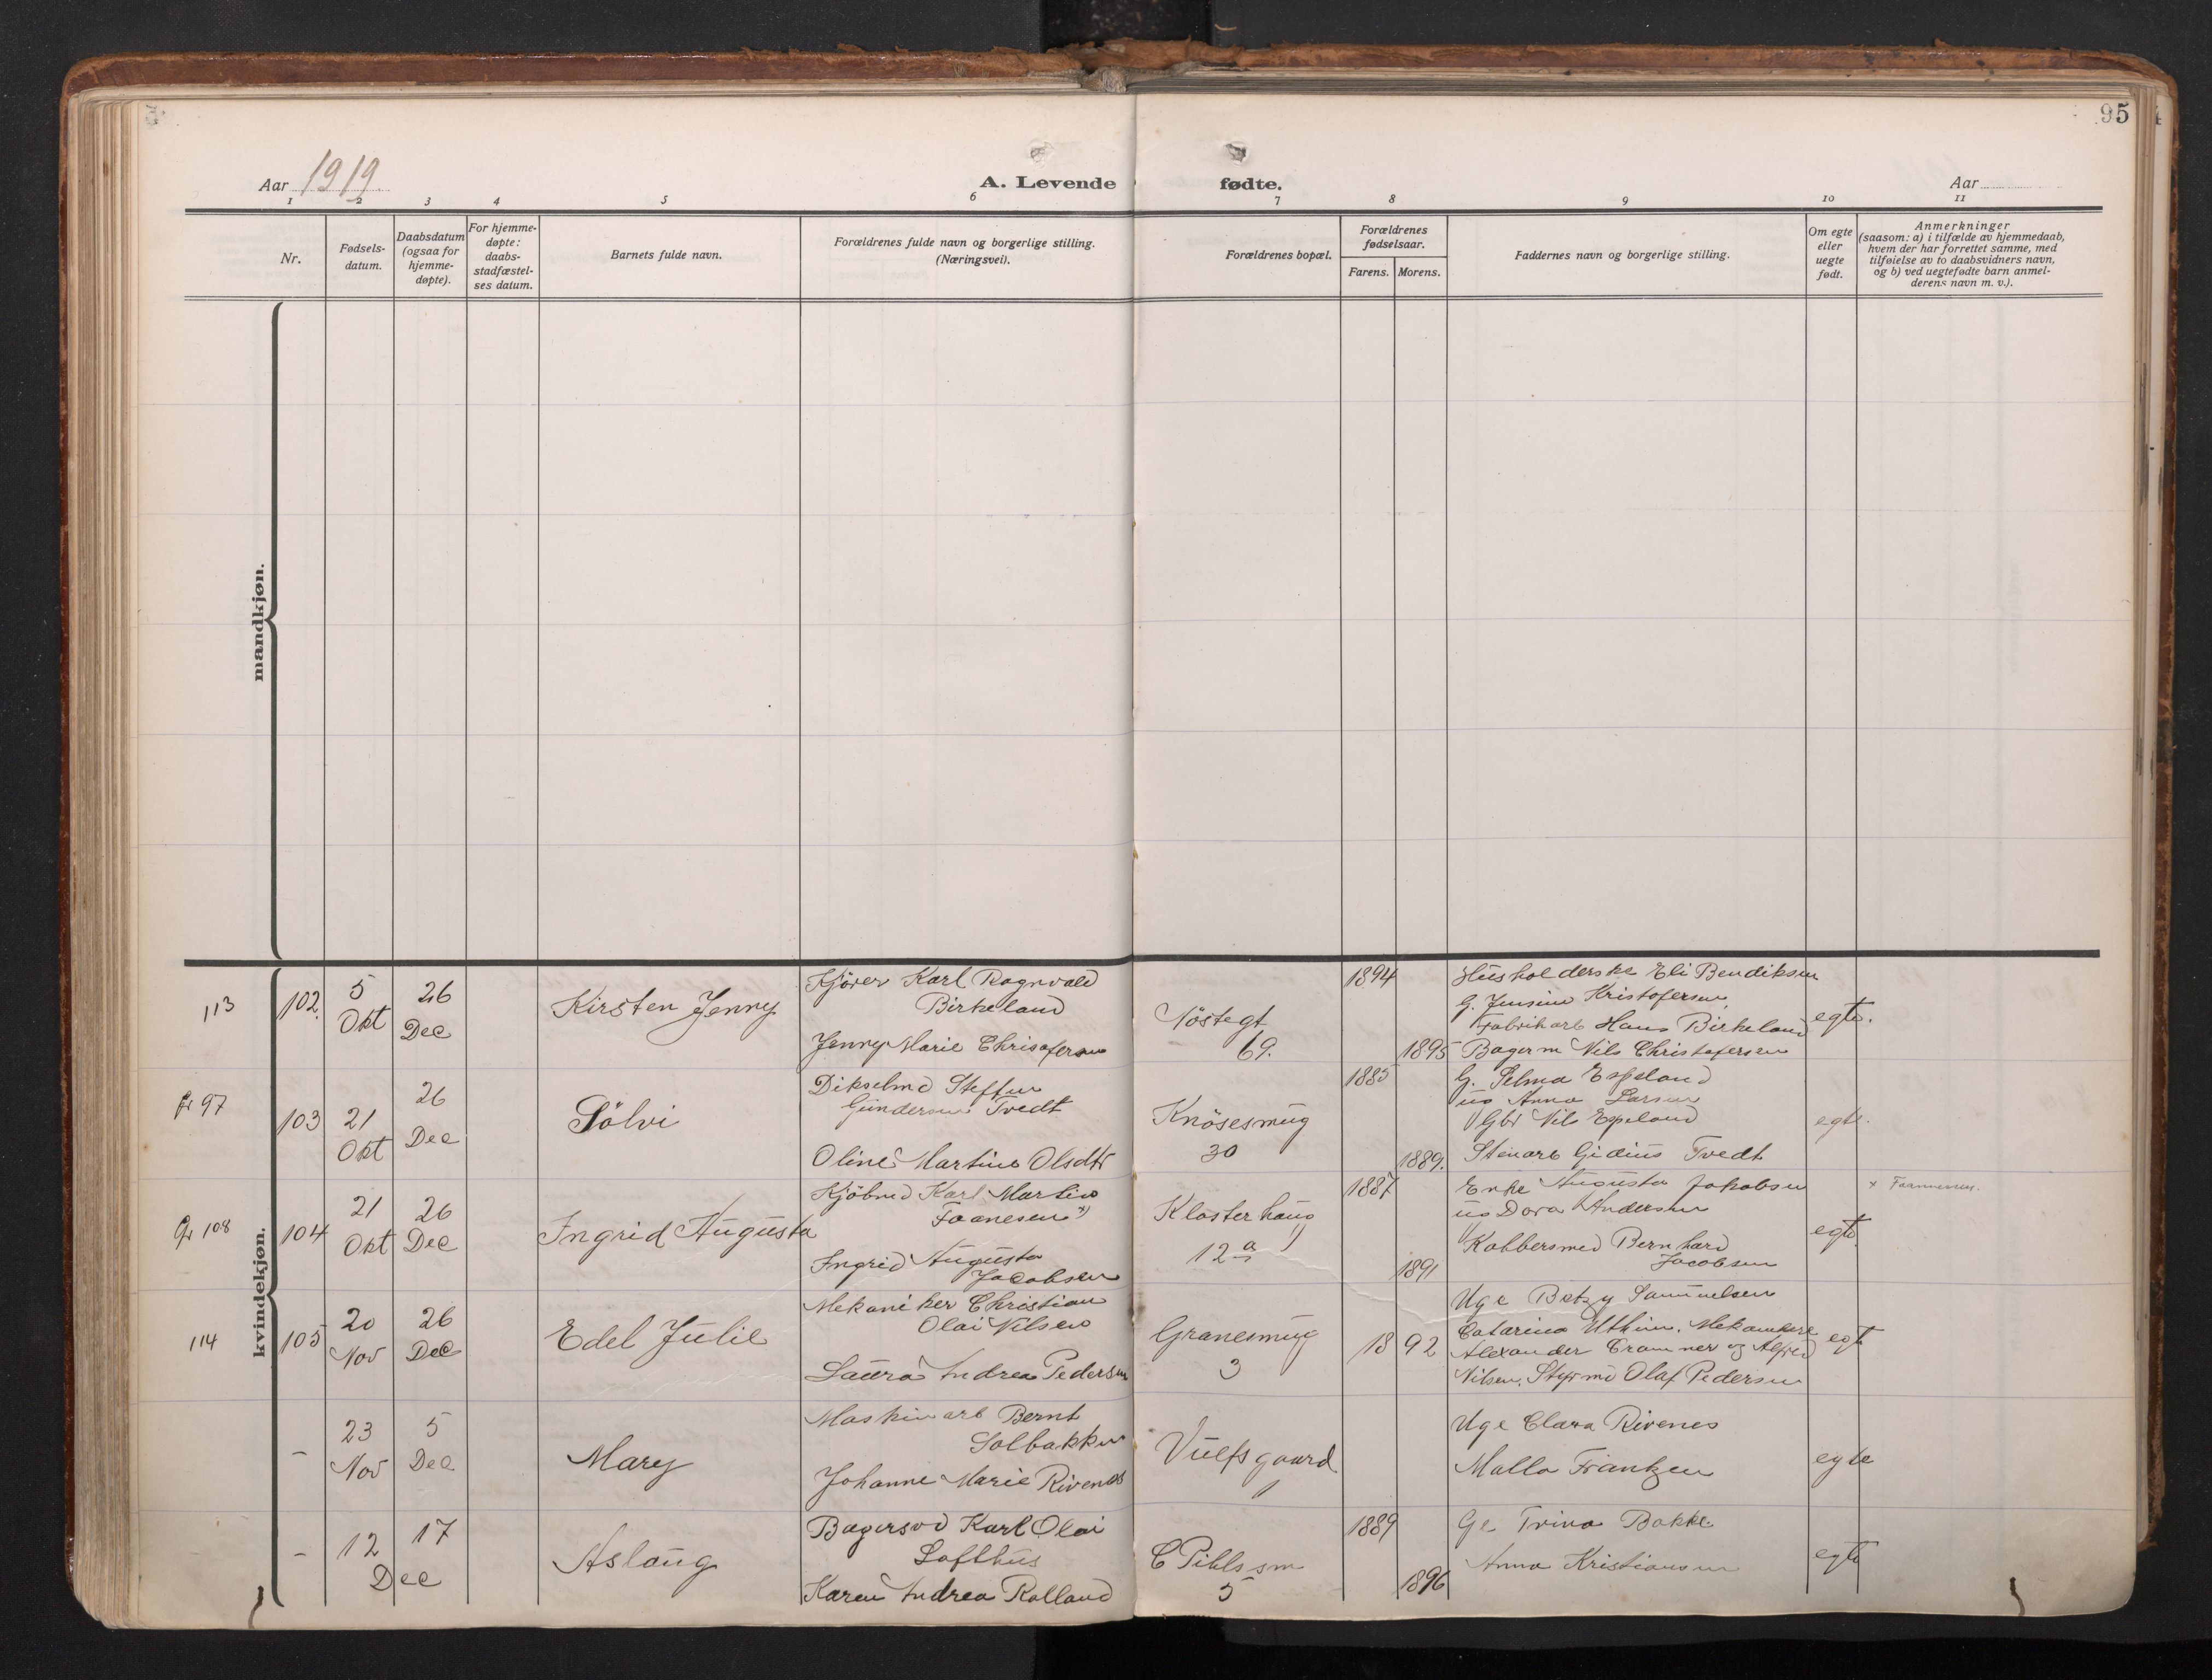 95
Aar 1919.
A. Levende fødte.
Aar
1 2 3 4 5 6 7 8 9 10 11
Nr.
Fødsels-
datum.
Daabsdatum
(ogsaa for
hjemme-
døpte).
For hjemme-
døpte:
daabs-
stadfæstel-
ses datum.
Barnets fulde navn.
Forældrenes fulde navn og borgerlige stilling.
(Næringsvei).
Forældrenes bopæl.
Forældrenes
fødselsaar.
Farens. Morens.
Faddernes navn og borgerlige stilling.
Om egte
eller
uegte
født.
Anmerkninger
(saasom: a) i tilfælde av hjemmedaab,
hvem der har forrettet samme, med
tilføielse av to daabsvidners navn,
og b) ved uegtefødte barn anmel-
derens navn m. v.).
mandkjøn.
kvindekjøn.
113
102.
5
Okt
26
Dec
Kirsten Jenny
Kjörer Karl Ragnvald
Birkeland
Jenny Marie Chrisofersen
Nöstegt
69.
1894
1895
Husholderske Eli Bendiksen
G. Jensine Kristofersen,
Fabrikarb Hans Birkeland
Bagerm Nils Christofersen
egte.
97
103
21
Okt
26
Dec
Sölvi
Dikselmd Steffen
Gundersen Tvedt
Oline Martine Olsdtr
Knösesmug
30
1885
1889.
G. Selma Espeland
us Anna Larsen
Gbr Nils Espeland
Stenarb Gidius Tvedt
egte.
108
104
21
Okt
26
Dec
Ingrid Augusta
Kjöbmd Karl Martin
Faanesen x)
Ingrid Augusta
Jacobsen
Klosterhaug
12 a
1887
1891
Enke Augusta Jakobsen
us Dora Andersen
Kobbersmed Bernhard
Jacobsen
egte.
x Faannessen.
114
105
20
Nov
26
Dec
Edel Julie
Mekaniker Christian
Olai Nilsen
Laura Andrea Pedersen
Granesmug
3
18 92
Uge Betzy Samuelsen
Catarina Uthim, Mekanikere
Alexander Crammer og Alfred
Nilsen, Styrmd Olaf Pedersen
egt
-
23
Nov
5
Dec
Mary
Maskinarb Bernt
Solbakken
Johanne Marie Rivenes
Vulfsgaard
1
Uge Clara Rivenes
Malla Frantzen
egte
-
12
17
Dec
Aslaug
Bagersvd Karl Olai
Lofthus
Karen Andrea Rolland
C Pihls sm
5
1889
1896
Ge Trina Bakke
Anna Kristiansen
egte